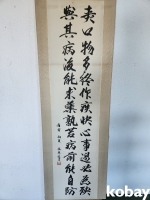 爽口物多終作疾快心事過必為殃
與其病後能求藥孰若病前能自防
kobay